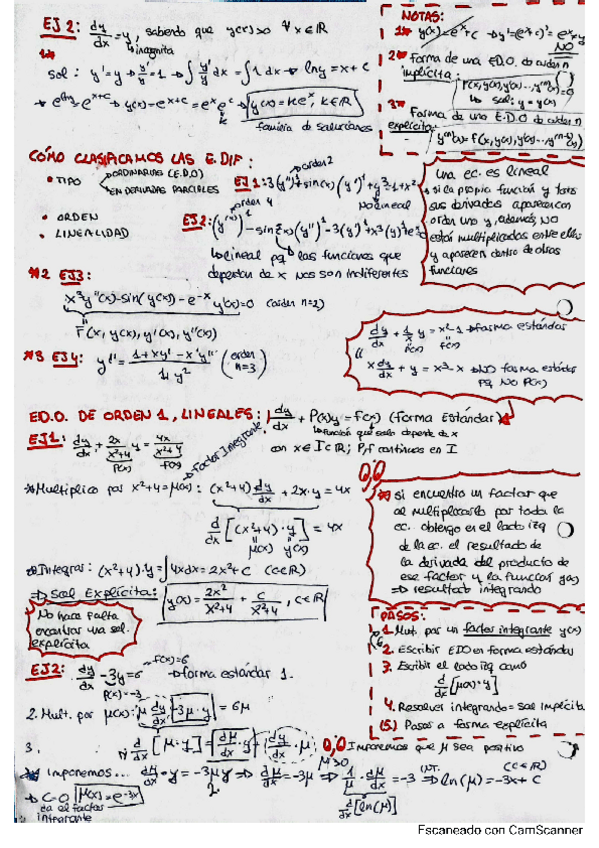 EJ 2: dy/dx = y, sabiendo que y(x)>0 ∀x∈ℝ
incognita
sol: y' = y → y'/y = 1 → ∫ y'/y dx = ∫ 1 dx → ln y = x + C
→ e^(ln y) = e^(x+c) → y(x) = e^(x+c) = e^x e^c → y(x) = K e^x, K∈ℝ
K
familia de soluciones
NOTAS:
1* y(x) = e^x + c → y' = (e^x + c)' = e^x ≠ y
NO
2* Forma de una E.D.O de orden n
implícita: F(x, y(x), y'(x)..., y^(n)(x)) = 0
↳ sol: y = y(x)
3* Forma de una E.D.O de orden n
explícita: y^(n)(x) = f(x, y(x), y'(x)... y^(n-1)(x))
CÓMO CLASIFICAMOS LAS E.DIF:
• TIPO
ORDINARIAS (E.D.O)
EN DERIVADAS PARCIALES
• ORDEN
• LINEALIDAD
orden 2
EJ 1:
No lineal
orden 4
EJ 2:
↳ lineal pq las funciones que
dependan de x nos son indiferentes
una ec. es lineal
si la propia función y todas
sus derivadas aparecen con
orden uno y, además, NO
están multiplicadas entre ellas
y aparecen dentro de otras
funciones
*2 EJ3:
x³y''(x) - sin(y(x)) - e^-x y'(x) = 0 (orden n=2)
F(x, y(x), y'(x), y''(x))
*3 EJ4: y''' = (1 + xy' - x³y'')/(1+y²) (orden n=3)
dy/dx + 1/x y = x²-1 → forma estándar
P(x) f(x)
x dy/dx + y = x³ - x → NO forma estándar
pq NO P(x)
ED.O. DE ORDEN 1, LINEALES: dy/dx + P(x)y = f(x) (forma Estándar)
↳ función que solo depende de x
con x∈I⊂ℝ; P, f continuas en I
EJ1: dy/dx + 2x/(x²+4) y = 4x/(x²+4)
P(x) f(x)
Factor Integrante
* Multiplico por x²+4 = μ(x): (x²+4) dy/dx + 2x·y = 4x
d/dx [(x²+4)·y] = 4x
μ(x) y(x)
* Integras: (x²+4)·y = ∫4x dx = 2x² + C (C∈ℝ)
⇒ Sol Explícita: y(x) = 2x²/(x²+4) + C/(x²+4), C∈ℝ
No hace falta
encontrar una sol.
explícita
* si encuentro un factor que
al multiplicarlo por toda la
ec. obtengo en el lado izq
de la ec. el resultado de
la derivada del producto de
ese factor y la función y(x)
⇒ resultado integrando
PASOS:
1. Mult. por un factor integrante y(x)
2. Escribir EDO en forma estándar
3. Escribir el lado izq como
d/dx [μ(x)·y]
4. Resolver integrando = sol implícita
(5.) Pasar a forma explícita
EJ2: dy/dx - 3y = 6 f(x)=6 → forma estándar 1.
P(x) = -3
2. Mult. por μ(x): μ dy/dx - 3μ·y = 6μ
3. d/dx [μ·y] = dμ/dx · y + dy/dx · μ
Imponemos que μ sea positivo
μ>0
* Imponemos... dμ/dx · y = -3μy ⇒ dμ/dx = -3μ ⇒ 1/μ · dμ/dx = -3 ⇒ INT. ln(μ) = -3x + C (C∈ℝ)
d/dx [ln(μ)]
→ C=0 μ(x) = e^(-3x)
da el factor
integrante
Escaneado con CamScanner